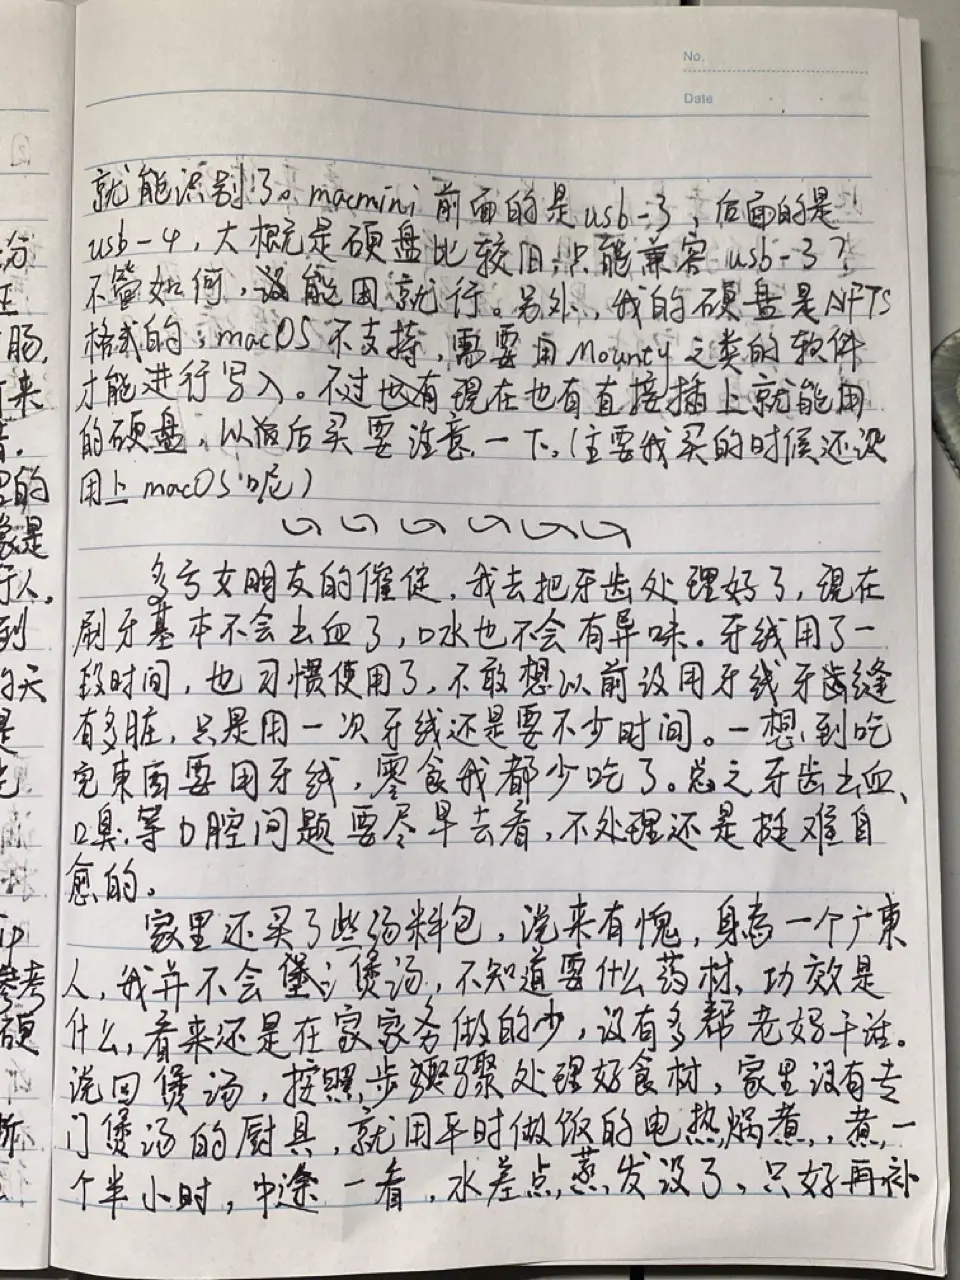 No.
Date
就能识别了。macmini前面的是usb-3，后面的是
usb-4，大概是硬盘比较旧，只能兼容usb-3？
不管如何，没能用就行。另外，我的硬盘是NFTS
格式的，macOS不支持，需要用Mounty之类的软件
才能进行写入。不过也有现在也有直接插上就能用
的硬盘，以后买要注意一下。（主要我买的时候还没
用上macOS呢）
多亏女朋友的催促，我去把牙齿处理好了，现在
刷牙基本不会出血了，口水也不会有异味。牙线用了一
段时间，也习惯使用了，不敢想以前没用牙线牙齿缝
有多脏，只是用一次牙线还是要不少时间。一想到吃
完東西要用牙线，零食我都少吃了。总之牙齿出血、
口臭等口腔问题要尽早去看，不处理还是挺难自
愈的。
家里还买了些汤料包，说来有愧，身为一个广東
人，我并不会煲汤，不知道要什么药材、功效是
什么，看来还是在家家务做的少，没有多帮老妈干活。
说回煲汤，按照步骤处理好食材，家里没有专
门煲汤的厨具，就用平时做饭的电热锅煮，煮一
个半小时，中途一看，水差点蒸发没了，只好再补